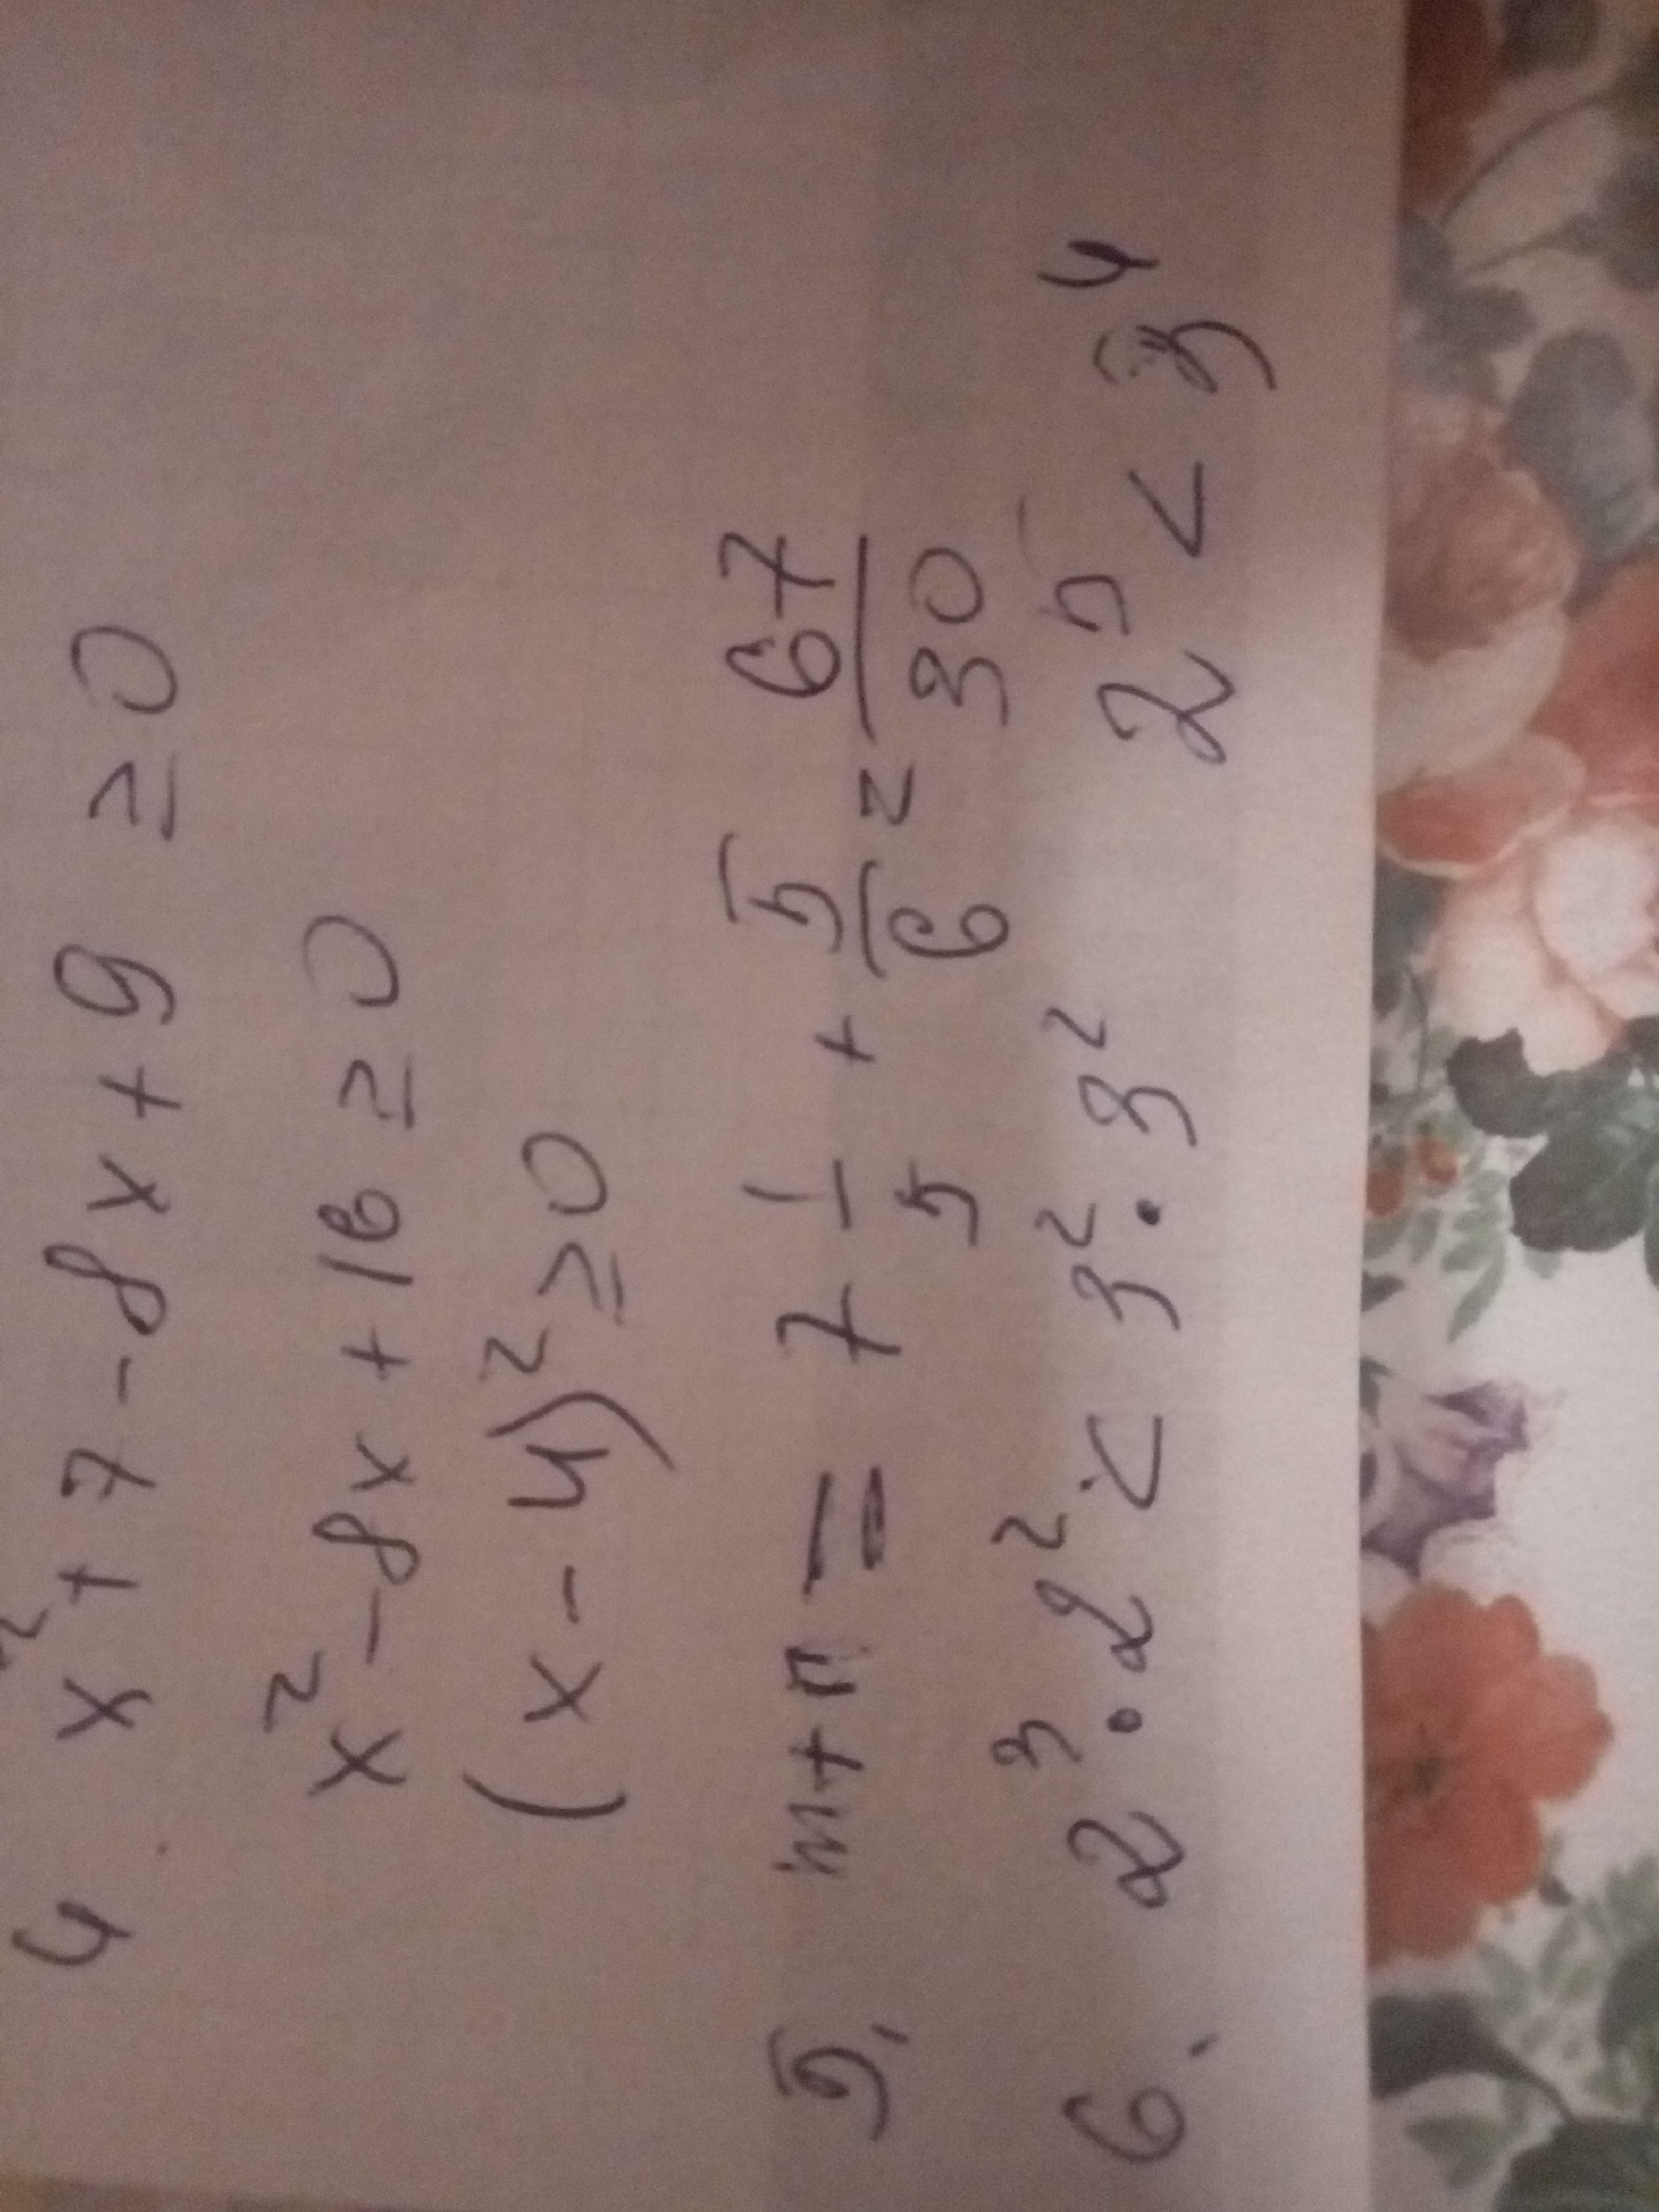 4. x² + 7 - 8x + 9 ≥ 0
x² - 8x + 16 ≥ 0
(x - 4)² ≥ 0
5. m + n = 7 1/5 + 5/6 = 67/30
6. 2³ · 2² < 3² · 3² 2⁵ < 3⁴